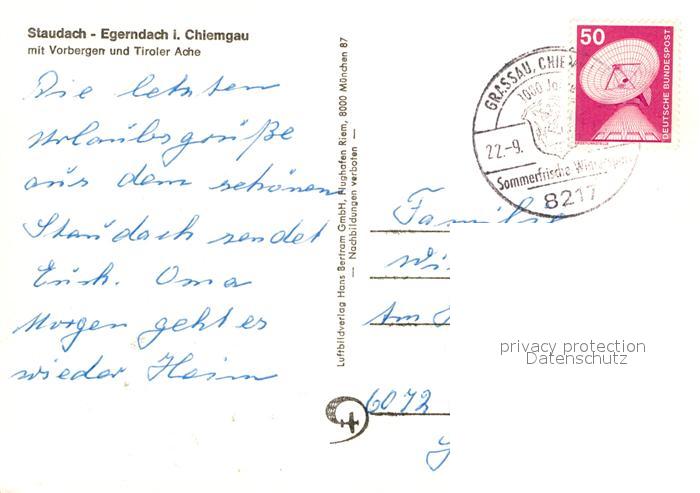 Staudach - Egerndach i. Chiemgau
mit Vorbergen und Tiroler Ache
Die letzten
Urlaubsgrüße
aus dem schönen
Staudach sendet
Euch. Oma
Morgen geht es
wieder Heim
Luftbildverlag Hans Bertram GmbH, Flughafen Riem, 8000 München 87
— Nachbildungen verboten —
50
DEUTSCHE BUNDESPOST
GRASSAU, CHIE
1000 Ja
22.-9.
Sommerfrische
8217
Familie
Am
6072
privacy protection
Datenschutz